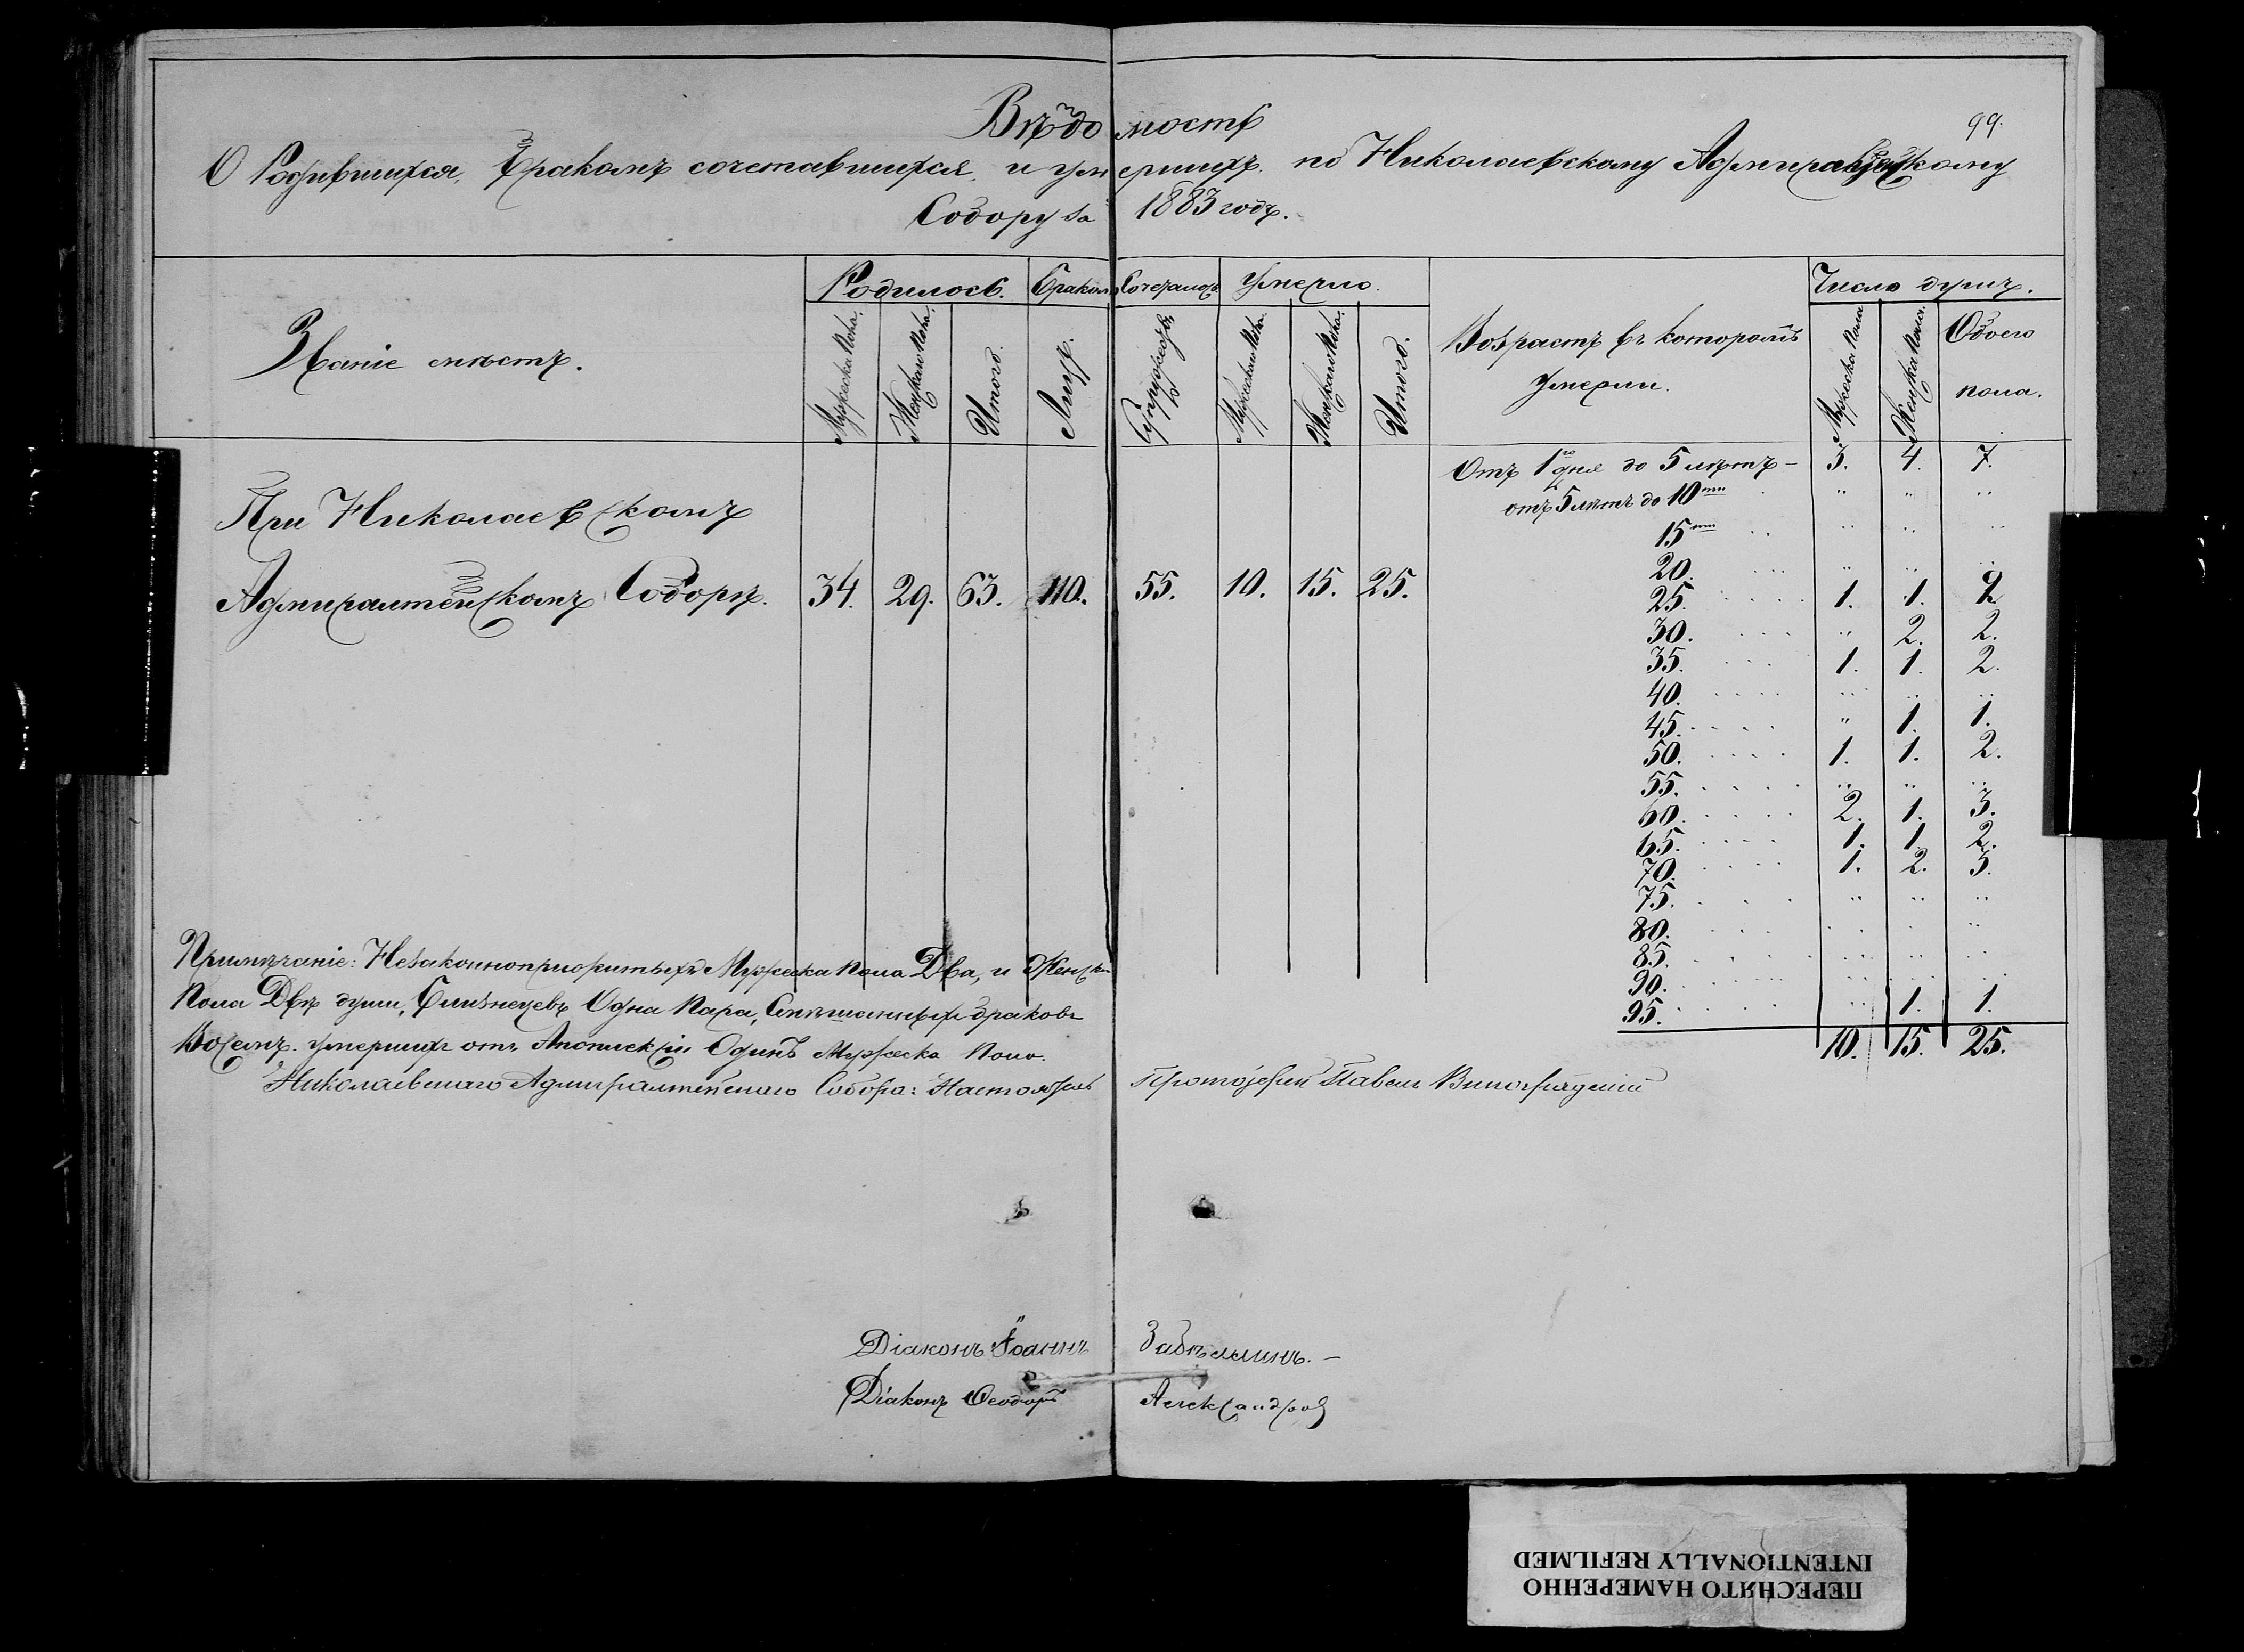 99.
Вѣдомость
О Родившихся, бракомъ сочетавшихся, и умершихъ, по Николаевскому Адмиралтейскому
Собору за 1883 годъ.
Званіе мѣстъ.
Родилось. Бракомъ Сочеталось Умерло.
Мужеска Пола. Женскаго Пола. Итого. Лицъ. Супружествъ Мужеска Пола. Женскаго Пола. Итого.
Возрастъ въ которомъ Умерли.
Число душъ.
Мужеска Пола Женска Пола. Обоего пола.
При Николаевскомъ
Адмиралтейскомъ Соборѣ. 34. 29. 63. 110. 55. 10. 15. 25.
Отъ 1го дня до 5 лѣтъ – 3. 4. 7.
отъ 5 лѣтъ до 10ти " " "
15ти " " "
20. " " "
25. 1. 1. 2
30. " 2. 2.
35. 1. 1. 2.
40. " " "
45. " 1. 1.
50. 1. 1. 2.
55. " " "
60. 2. 1. 3.
65. 1. 1. 2.
70. 1. 2. 3.
75. " " "
80. " " "
85. " " "
90. " " "
95. " 1. 1.
10. 15. 25.
Примѣчаніе: Незаконноприжитыхъ Мужеска пола Два, и Женска
Пола Двѣ души, Близнецевъ Одна Пара, Смѣшанныхъ браковъ
Восемь. Умершихъ отъ Апоплексіи Одинъ Мужеска Пола.
Николаевскаго Адмиралтейскаго Собора: Настоятель Протоіерей Павелъ Виноградскій
Діаконъ Іоаннъ Забѣлинъ. –
Діаконъ Ѳеодоръ Александровъ
ПЕРЕСНЯТО НАМЕРЕННО
INTENTIONALLY REFILMED